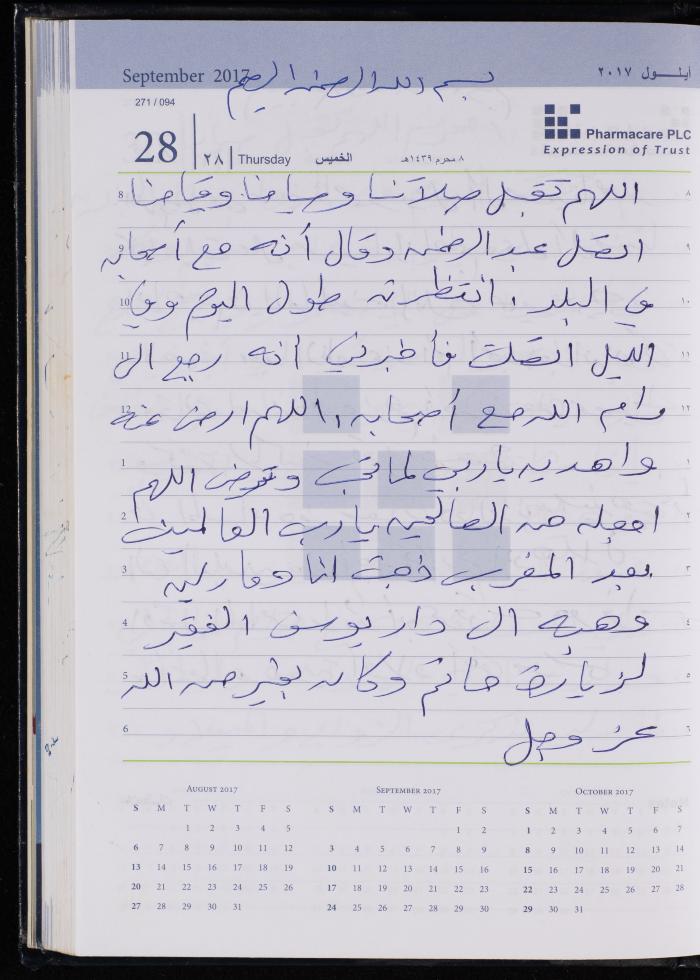 September 2017 بسم الله الرحمن الرحيم أيلول ٢٠١٧
271 / 094
28 ٢٨ Thursday الخميس ٨ محرم ١٤٣٩هـ
Pharmacare PLC
Expression of Trust
8 اللهم تقبل صلاتنا وصيامنا وقيامنا ٨
9 اتصل عبد الرحمن وقال أنه مع أصحابه ٩
10 في البلد، انتظرته طول اليوم وفي ١٠
11 الليل اتصلت فأخبرني أنه رجع الى ١١
12 رام الله مع أصحابه، اللهم ارض عنه ١٢
1 واهديه ياربي لما تحب وترض اللهم ١
2 اجعله من الصالحين يارب العالمين ٢
3 بعد المغرب ذهبت انا ومارلين ٣
4 وهبه الى دار يوسف الفقير ٤
5 لزيارة حاتم وكان بخير من الله ٥
6 عز وجل ٦
AUGUST 2017
S M T W T F S
1 2 3 4 5
6 7 8 9 10 11 12
13 14 15 16 17 18 19
20 21 22 23 24 25 26
27 28 29 30 31
SEPTEMBER 2017
S M T W T F S
1 2
3 4 5 6 7 8 9
10 11 12 13 14 15 16
17 18 19 20 21 22 23
24 25 26 27 28 29 30
OCTOBER 2017
S M T W T F S
1 2 3 4 5 6 7
8 9 10 11 12 13 14
15 16 17 18 19 20 21
22 23 24 25 26 27 28
29 30 31